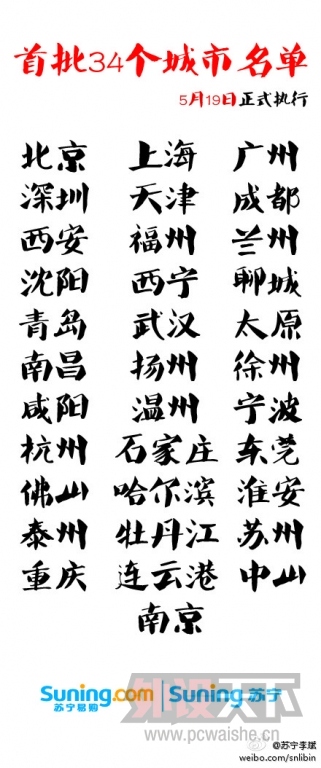 首批34个城市名单
5月19日正式执行
北京 上海 广州
深圳 天津 成都
西安 福州 兰州
沈阳 西宁 聊城
青岛 武汉 太原
南昌 扬州 徐州
咸阳 温州 宁波
杭州 石家庄 东莞
佛山 哈尔滨 淮安
泰州 牡丹江 苏州
重庆 连云港 中山
南京
Suning.com Suning 苏宁
苏宁易购
外设天下
www.pcwaishe.cn
@苏宁李斌
weibo.com/snlibin